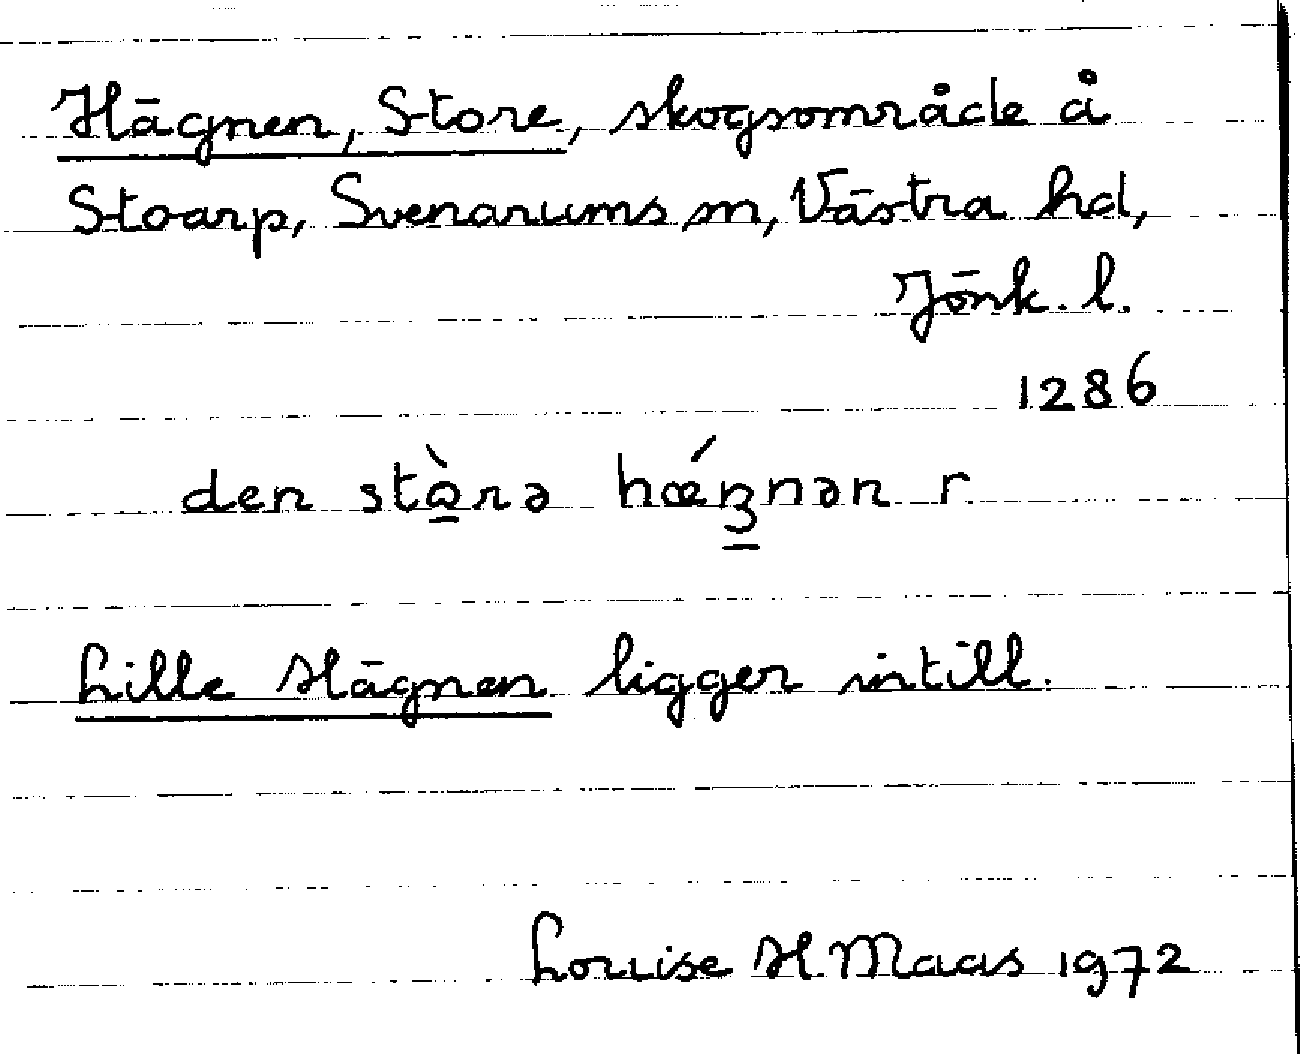 Hägnen, Store, skogsområde å
Stoarp, Svenarums sn, Västra hd,
Jönk. l.
1286
den stò̱rə hǽʒ̱nən r
Lille Hägnen ligger intill.
Louise H Maas 1972